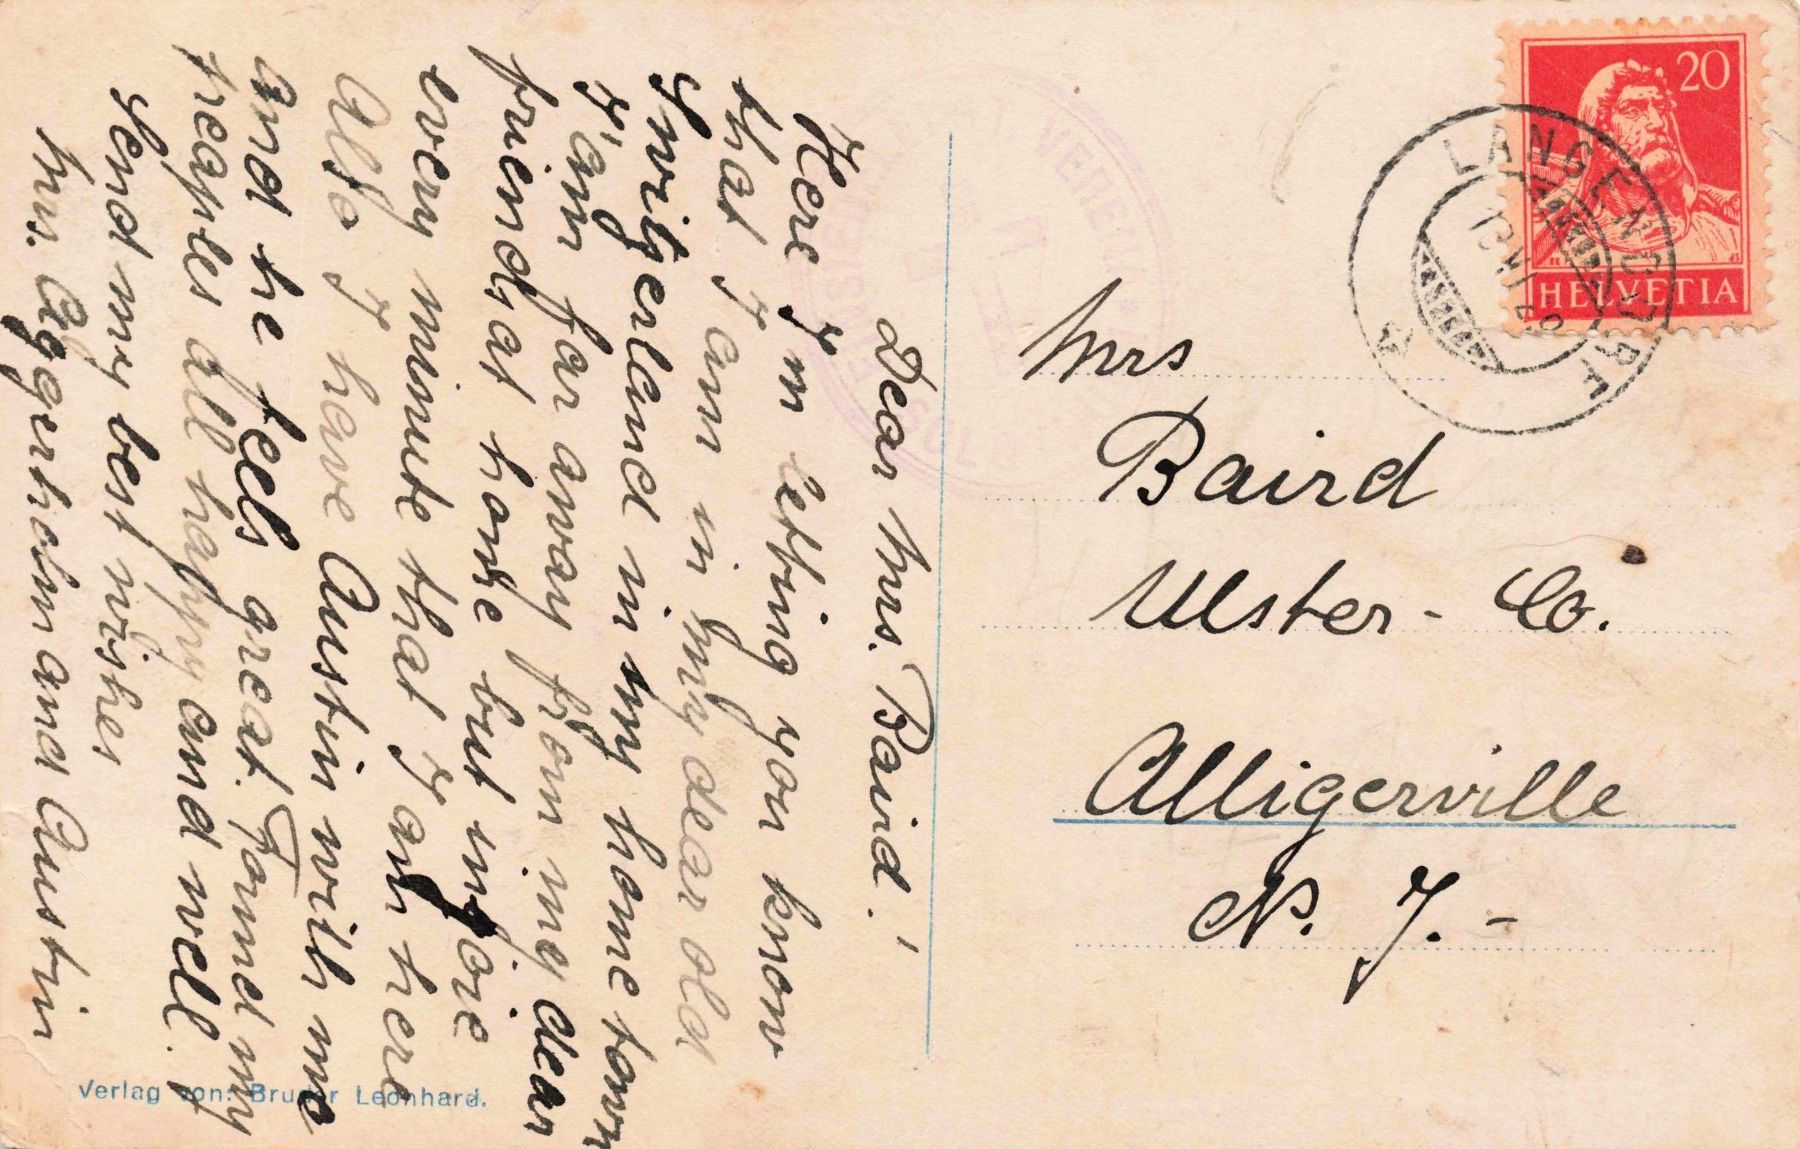 Dear Mrs. Baird!
Here I'm letting you know
that I am in my dear old
Switzerland in my home town
I'am far away from my dear
friends at home but injoie
every minute that I am here
Also I have Austin with me
and he feels great. Found my
peaples all happy and well!
Send my best wishes
Mrs. Aggerholm and Austin
Verlag von: Bruder Leonhard.
20
HELVETIA
LANGENDORF
Mrs
Baird
Ulster - Co.
Alligerville
N. J. -